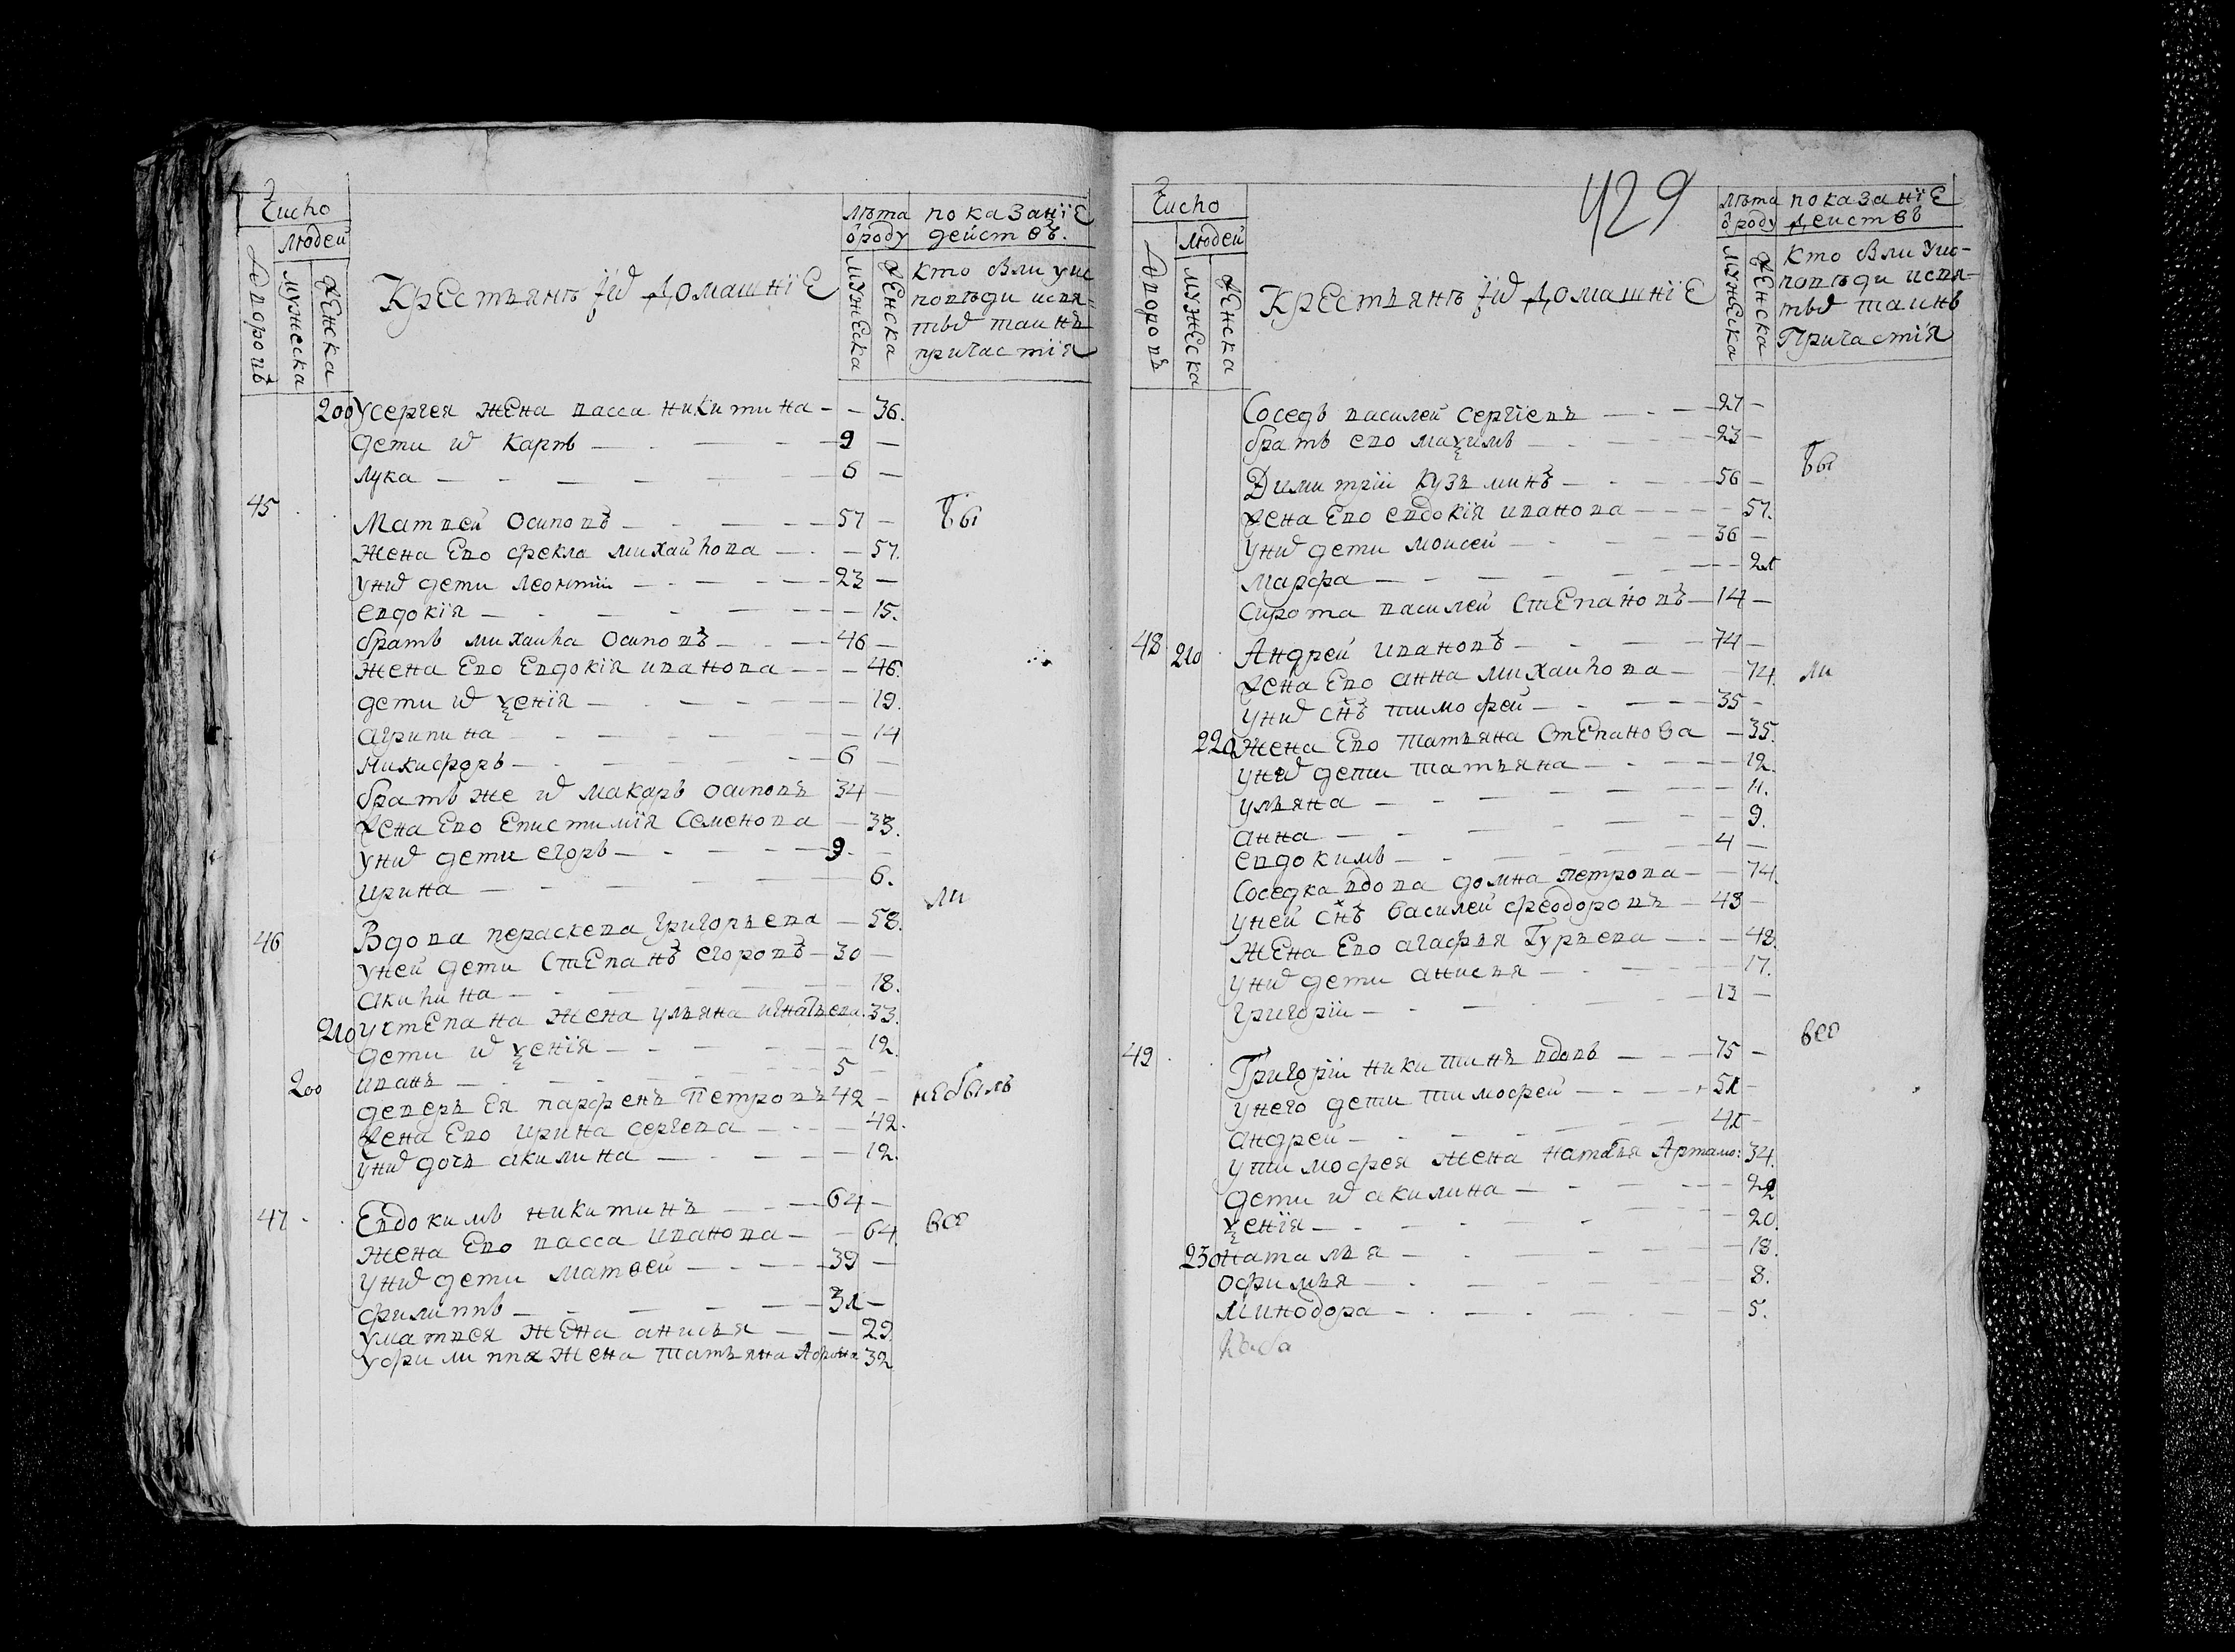 Число
людей
дворовъ
мужеска
женска
Крестьянѣ їихъ домашнїе
лѣта ѿроду
мужеска
женска
показанїе действъ.
кто были уис
поведи исвя-
тыхъ таинъ
причастїя
200 усергея жена васса никитина - - 36.
дети ихъ карпъ - 9 -
лука - 6 -
45 Матвей осиповъ - 57 - бы
жена ево фекла михайлова - 57.
унихъ дети леонтїи - 23 -
евдокїя - 15.
братъ михаила осиповъ - 46 -
жена ево евдокїя иванова - 46.
дети ихъ ѯенїя - 19.
агрипина - 14
никифоръ - 6
братъ же ихъ макаръ осиповъ 34 -
жена ево епистимїя семенова - 33.
унихъ дети егоръ - 9. -
ирина - 6.
ли
46 Вдова пераскева григорьева - 58.
уней дети степанъ егоровъ - 30 -
акилина - 18.
210 устепана жена ульяна игнатьева. 33.
дети ихъ ѯенїя - 12.
200 иванъ - 5 -
деверь ея парфенъ петровъ 42 - небылъ
жена ево ирина сергева - 42.
унихъ дочь акилина - 12.
47 Евдокимъ никитинъ - 64 -
жена ево васса иванова - 64. все
унихъ дети матвей - 39 -
филиппъ - 31 -
уматвея жена анисья - 29.
уфилиппа жена татьяна 32
429
Число
людей
дворовъ
мужеска
женска
Крестьянѣ їихъ домашнїе
лѣта ѿроду
мужеска
женска
показанїе действъ
кто были уис-
поведи исвя-
тыхъ таинъ
Причастїя
соседъ василей сергїевъ - 27 -
братъ ево маѯимъ - 23 -
бы
Димитрїи кузьминъ - 56 -
жена ево евдокїя иванова - 57.
унихъ дети моисей - 36 -
марфа - 21
сирота василей степановъ - 14 -
48 210 Андрей ивановъ - 74 -
жена ево анна михаилова - 74. ли
унихъ снъ тимофей - 35 -
220 жена ево татьяна степанова - 35.
унихъ дети татьяна - 12.
ульяна - 11.
анна - 9.
евдокимъ - 4 -
соседка вдова домна петрова - 74.
уней снъ василей феодоровъ - 48 -
жена ево агафья гурьева - 48.
унихъ дети анисья - 17.
григорїи - 13 -
все
49 Григорїи никитинъ вдовъ - 75 -
унего дети тимофей - 51 -
андрей - 41 -
утимофея жена наталья Артамо: 34.
дети ихъ акилина - 22
ѯенїя - 20.
230 наталья - 18.
офимья - 8.
минодора - 5.